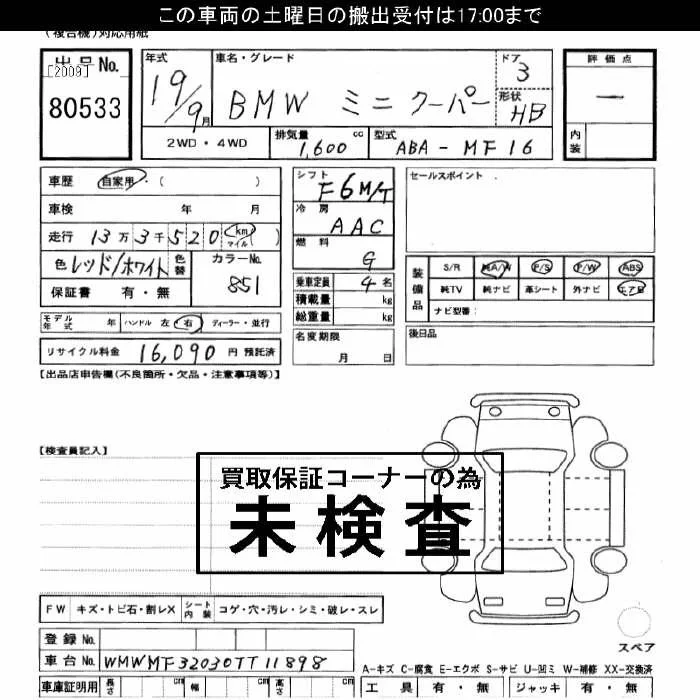 この車両の土曜日の搬出受付は17:00まで
(複合機)対応用紙
出品No.
[2009]
80533
年式
19/9月
車名・グレード
BMW ミニ クーパー
ドア
3
形状
HB
2WD・4WD
排気量
1,600 cc
型式
ABA-MF16
評価点
—
内装
車歴 自家用・( )
車検 年 月
走行 13万3千520 (km マイル)
色 レッド/ホワイト 色替
カラーNo.
851
保証書 有・無
シフト
F6M/T
冷房
AAC
燃料
G
乗車定員 4名
積載量 kg
総重量 kg
セールスポイント
装備品
S/R 純A/W P/S P/W ABS
純TV 純ナビ 革シート 外ナビ エアB
ナビ型番:
モデル年式 年 ハンドル 左 右 ディーラー・並行
リサイクル料金 16,090円 預託済
名変期限
月 日
後日品
【出品店申告欄(不良箇所・欠品・注意事項等)】
【検査員記入】
買取保証コーナーの為
未検査
FW キズ・トビ石・割レX シート内装 コゲ・穴・汚レ・シミ・破レ・スレ
登録No.
車台No. WMWMF32030TT11898
スペア
A-キズ C-腐食 E-エクボ S-サビ U-凹ミ W-補修 XX-交換済
車庫証明用 長さ cm 幅 cm 高さ cm
工具 有・無 ジャッキ 有・無